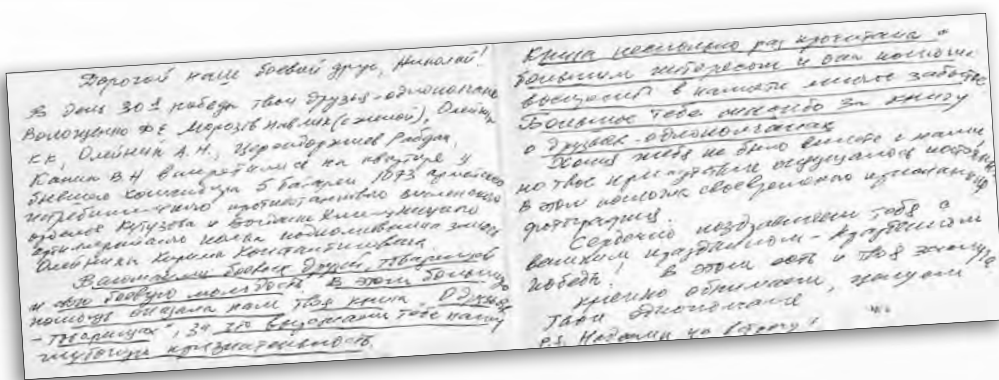 Дорогой наш боевой друг, Николай!
В день 30й победы твои друзья-однополчане
Волощенко Ф.Е. Морозов Павлик (с женой), Олейник
К.К., Олейник А.М., Цероиторжиев Рабдан,
Канин В.Н встретились на квартире у
бывшего комбатра 5 батареи 1073 армейского
истребительного противотанкового виленского
орденов Кутузова и Богдана Хмельницкого
артиллерийского полка подполковника запаса
Олейника Кирила Константиновича.
Вспоминали боевых друзей, товарищей
и свою боевую молодость. В этом большую
помощь оказала нам твоя книга „О друзьях
-товарищах", за что выражаем тебе нашу
глубокую признательность.
Книга несколько раз прочитана с
большим интересом и она помогла
воскресить в памяти многое забытое
Большое тебе спасибо за книгу
о друзьях-однополчанах
Хотя тебя не было вместе с нами
но твое присутствие ощущалось
В этом помогли своевременно
фотографии.
Сердечно поздравляем тебя с
великим праздником - праздником
победы! В этом есть и твоя заслуга
крепко обнимаем, целуем
твои однополчане
P.S. Надеемся на встречу!